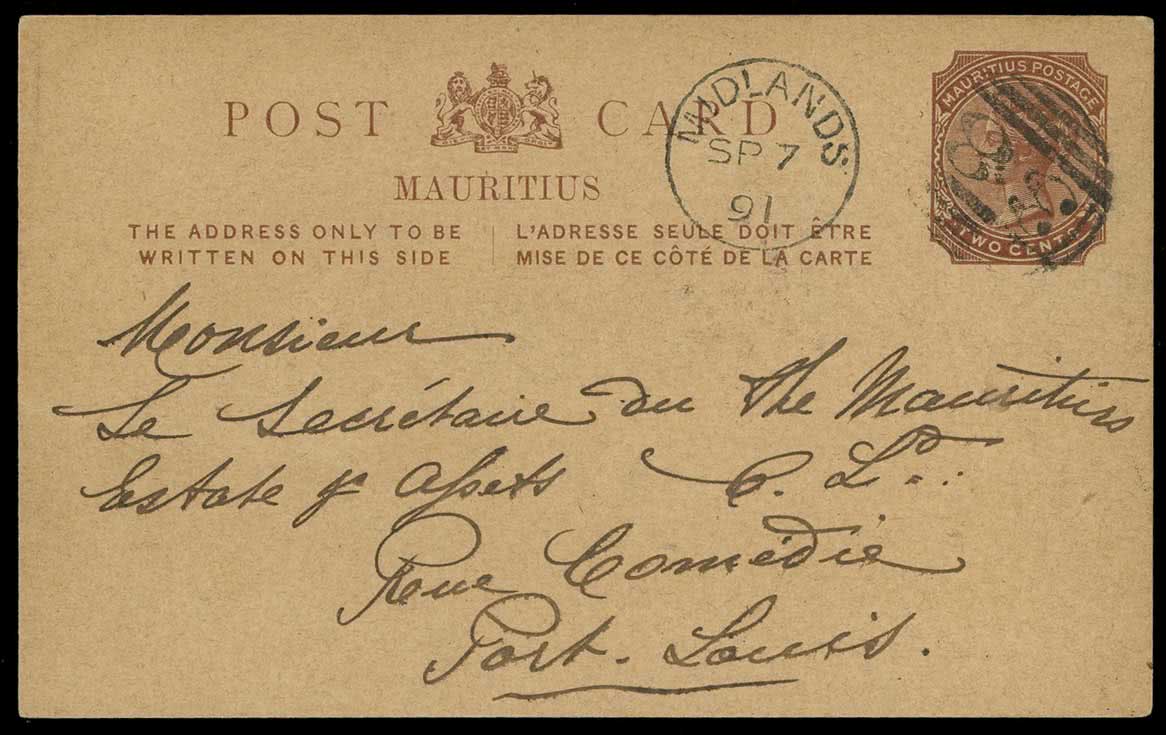 POST CARD
MAURITIUS
THE ADDRESS ONLY TO BE
WRITTEN ON THIS SIDE
L'ADRESSE SEULE DOIT ÊTRE
MISE DE CE CÔTÉ DE LA CARTE
MIDLANDS
SP 7
91
MAURITIUS POSTAGE
TWO CENTS
Monsieur
Le Secrétaire du The Mauritius
Estate & Assets C. Ld.
Rue Comédie
Port-Louis.